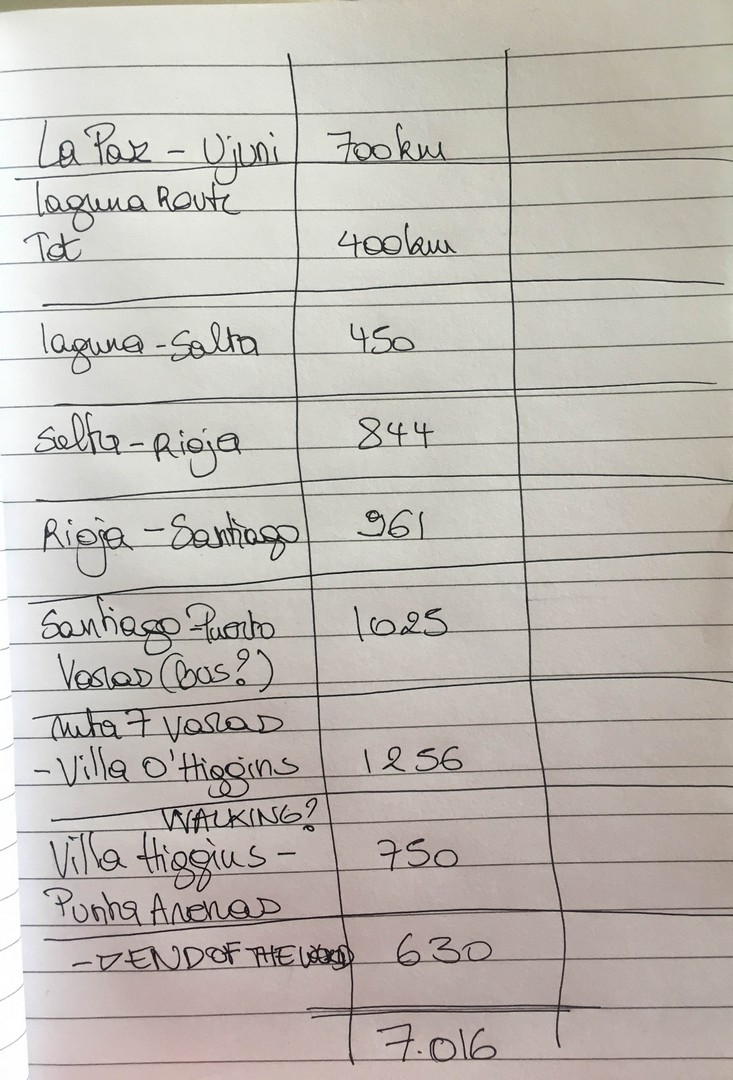 La Paz - Ujuni 700km
laguna Route
Tot 400km
laguna - Salta 450
Salta - Rioja 844
Rioja - Santiago 961
Santiago - Puerto 1025
Varas (bus?)
ruta 7 varas
- Villa O'Higgins 1256
WALKING?
Villa Higgins - 750
Punta Arenas
-> END OF THE 630
7.016